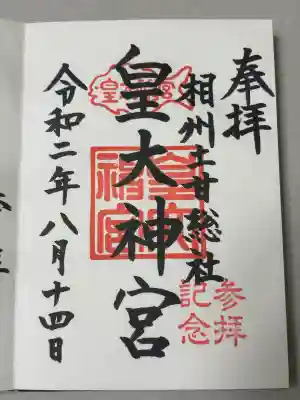 奉拝
相州土甘総社
皇大神宮
令和二年八月十四日
参拝
記念